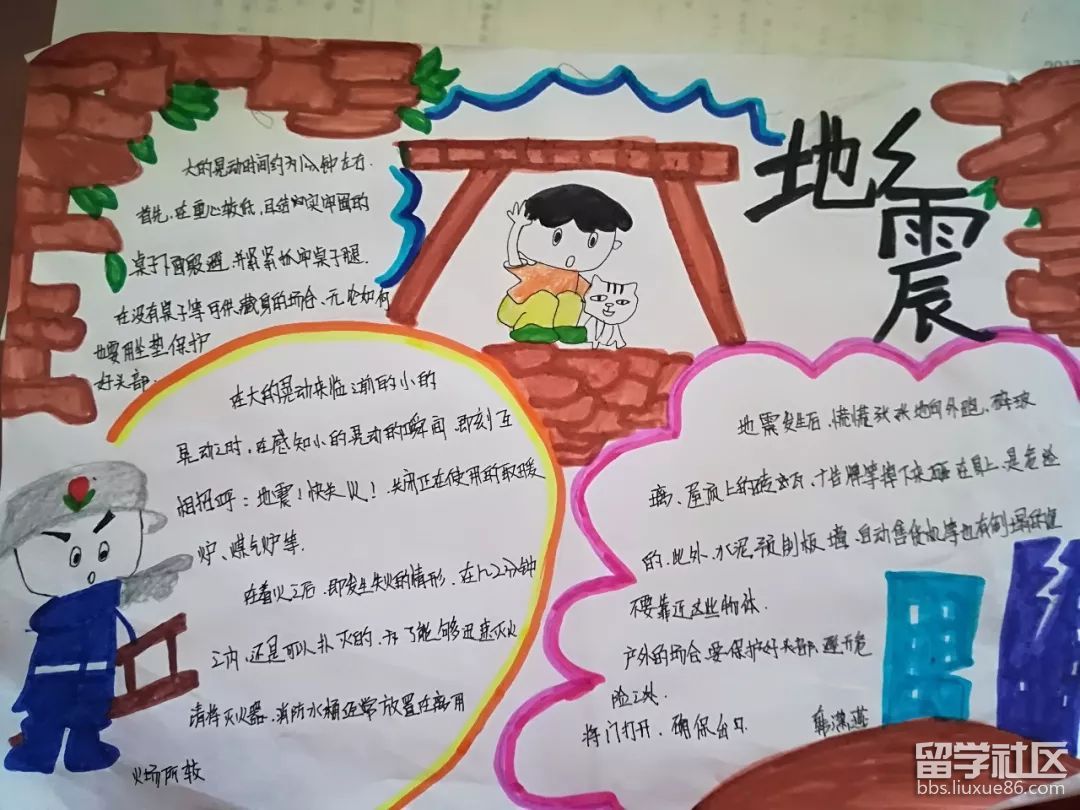 地震
大的晃动时间约为1分钟左右.
首先,在重心较低,且结实牢固的
桌子下面躲避,并紧紧抓牢桌子腿.
在没有桌子等可供藏身的场合,无论如何
也要用坐垫保护
好头部.
在大的晃动来临之前的小的
晃动之时,在感知小的晃动的瞬间,即刻互
相招呼:地震!快关火!,关闭正在使用的取暖
炉、煤气炉等.
在着火之后,即发生失火的情形,在1~2分钟
之内,还是可以扑灭的.为了能够迅速灭火
请将灭火器、消防水桶经常放置在离用
火场所较
地震发生后,慌慌张张地向外跑,碎玻
璃、屋顶上的砖瓦、广告牌等掉下来砸在身上,是危险
的.此外,水泥预制板墙、自动售货机等也有倒塌的
不要靠近这些物体.
户外的场合,要保护好头部,避开危
险之处.
将门打开,确保出口
留学社区
bbs.liuxue86.com